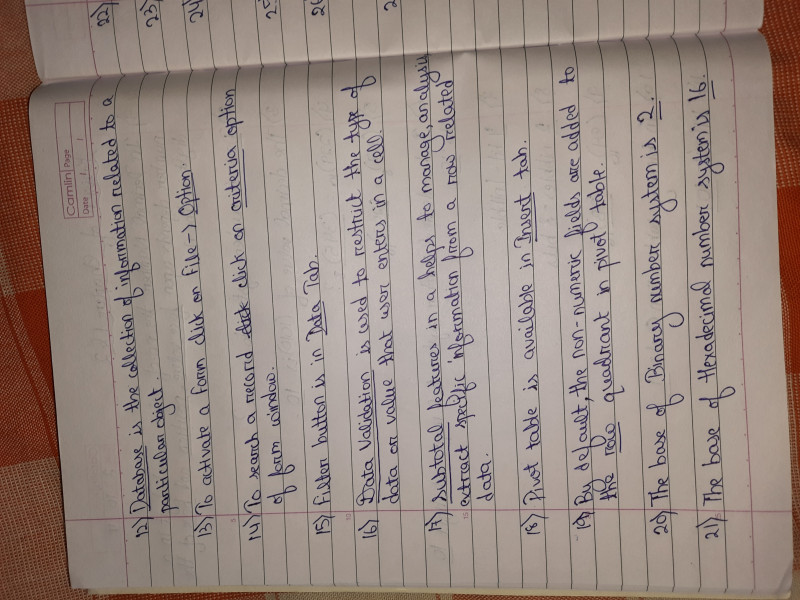 Camlin Page
Date / /
12) Database is the collection of information related to a
particular object.
13) To activate a form click on File -> Option.
14) To search a record click click on criteria option
of form window.
15) Filter button is in Data Tab.
16) Data Validation is used to restruct the type of
data or value that user enters in a cell.
17) Subtotal features in a helps to manage, analysis
extract specific information from a row related
data.
18) Pivot table is available in Insert tab.
19) By default, the non-numeric fields are added to
the row quadrant in pivot table.
20) The base of Binary number system is 2.
21) The base of Hexadecimal number system is 16.
22)
23)
24)